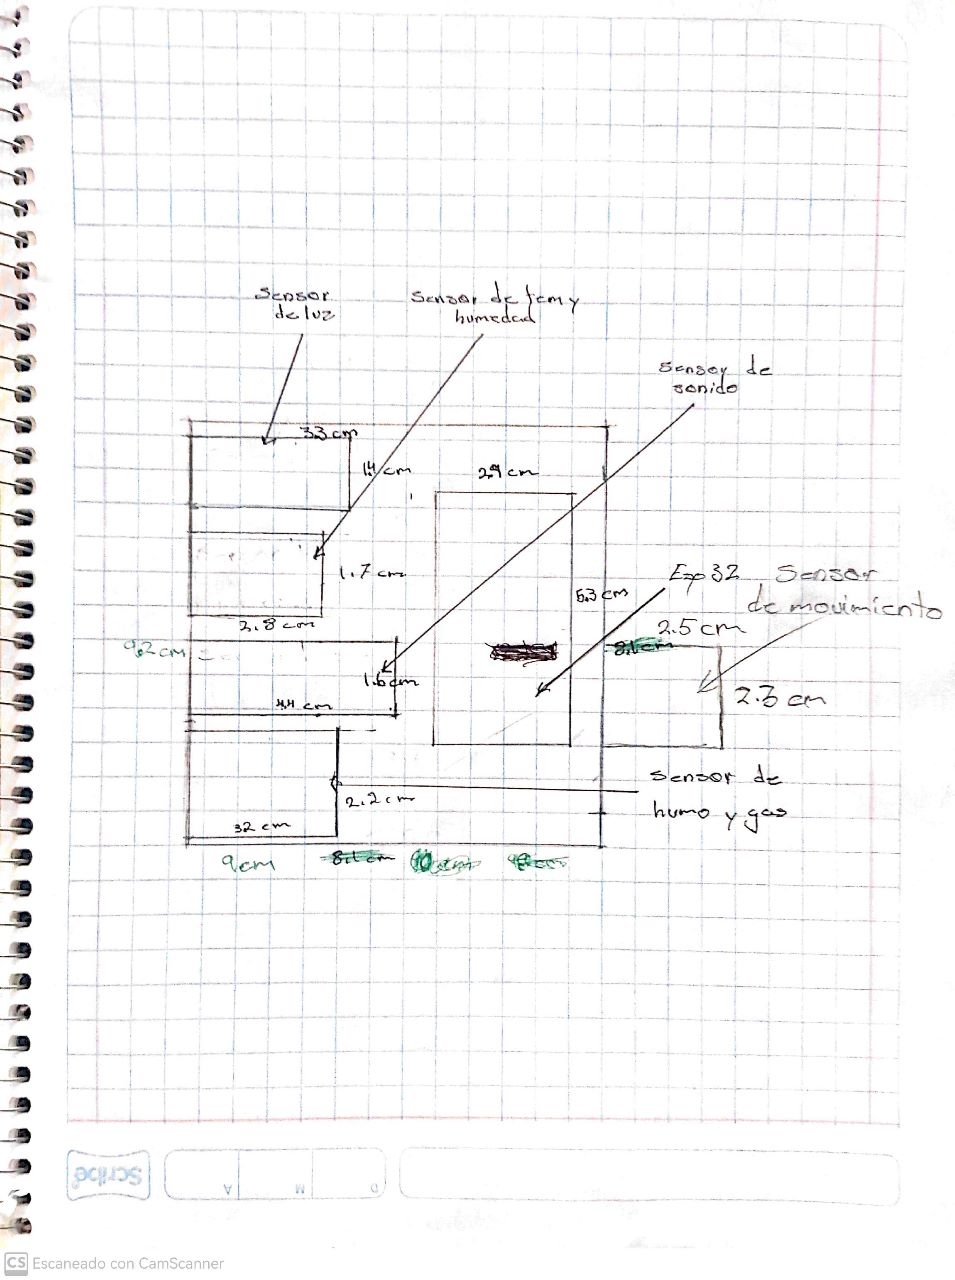 Sensor
de luz
Sensor de tem y
humedad
Sensor de
sonido
3.3 cm
1.4 cm
2.9 cm
1.7 cm
Esp32
Sensor
de movimiento
5.3 cm
2.8 cm
2.5 cm
9.2 cm
8.1 cm
1.6 cm
2.3 cm
4.4 cm
Sensor de
humo y gas
2.2 cm
3.2 cm
9 cm
8.1 cm
Scribe
D
M
A
CS Escaneado con CamScanner